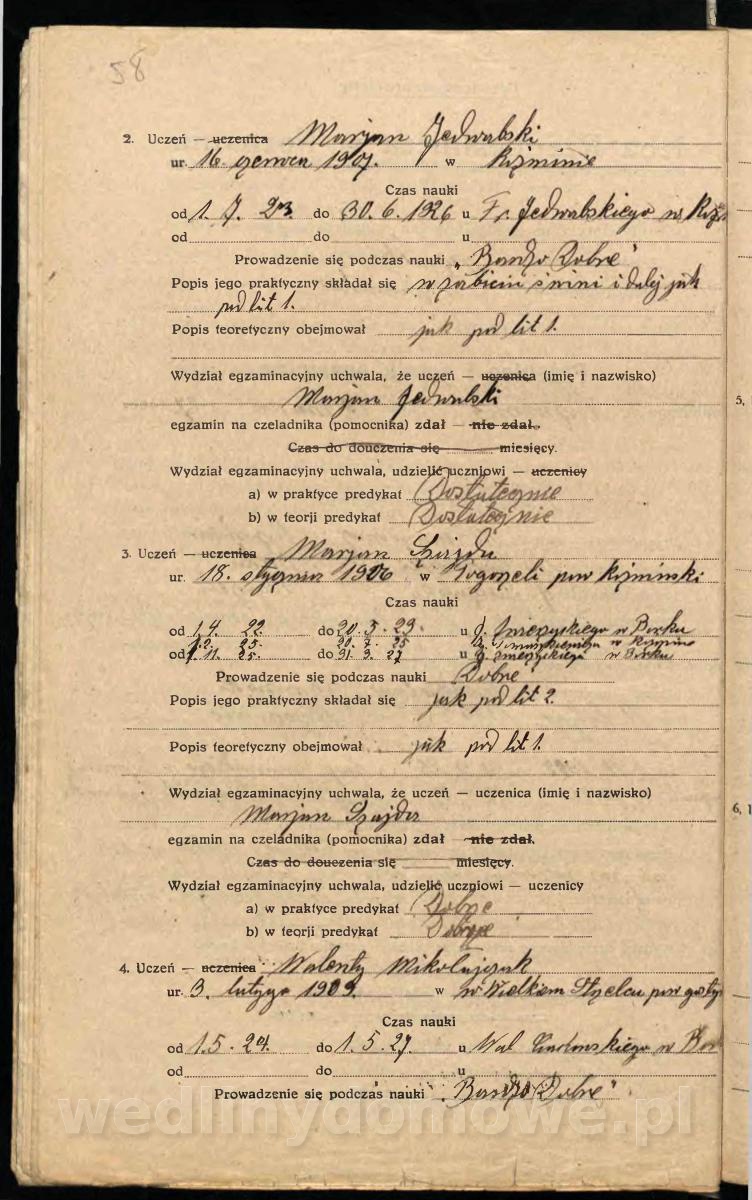 58
2. Uczeń — uczenica Marjan Jedwabski
ur. 16 czerwca 1907. w Koźminie
Czas nauki
od 1. 7. 23. do 30. 6. 1926 u Fr. Jedwabskiego w
od do u
Prowadzenie się podczas nauki „Bardzo Dobre"
Popis jego praktyczny składał się w zabiciu świni i dalej jak
pod lit 1.
Popis teoretyczny obejmował jak pod lit 1.
Wydział egzaminacyjny uchwala, że uczeń — uczenica (imię i nazwisko)
Marjan Jedwabski
egzamin na czeladnika (pomocnika) zdał — nie zdał.
Czas do douczenia się miesięcy.
Wydział egzaminacyjny uchwala, udzielić uczniowi — uczenicy
a) w praktyce predykat Dostatecznie
b) w teorji predykat Dostatecznie
3. Uczeń — uczenica Marjan Szajda
ur. 18. stycznia 1906 w Pogorzeli pow koźmiński
Czas nauki
od 1.4. 22. do 20. 5. 23. u J. w Borku
1.2. 23. 20. 7. 25 w Koźminie
od 1. 11. 25. do 31. 3. 27 u J. w Borku
Prowadzenie się podczas nauki „Dobre"
Popis jego praktyczny składał się jak pod lit 2.
Popis teoretyczny obejmował jak pod lit 1.
Wydział egzaminacyjny uchwala, że uczeń — uczenica (imię i nazwisko)
Marjan Szajda
egzamin na czeladnika (pomocnika) zdał — nie zdał.
Czas do douczenia się miesięcy.
Wydział egzaminacyjny uchwala, udzielić uczniowi — uczenicy
a) w praktyce predykat Dobrze
b) w teorji predykat Dobrze
4. Uczeń — uczenica Walenty Mikołajczak
ur. 3. lutego 1909. w w Wielkiem Strzelcu pow gosty
Czas nauki
od 1. 5. 24. do 1. 5. 27. u Wal w Bor
od do u
Prowadzenie się podczas nauki „Bardzo Dobre"
5,
6, 1
wedlinydomowe.pl